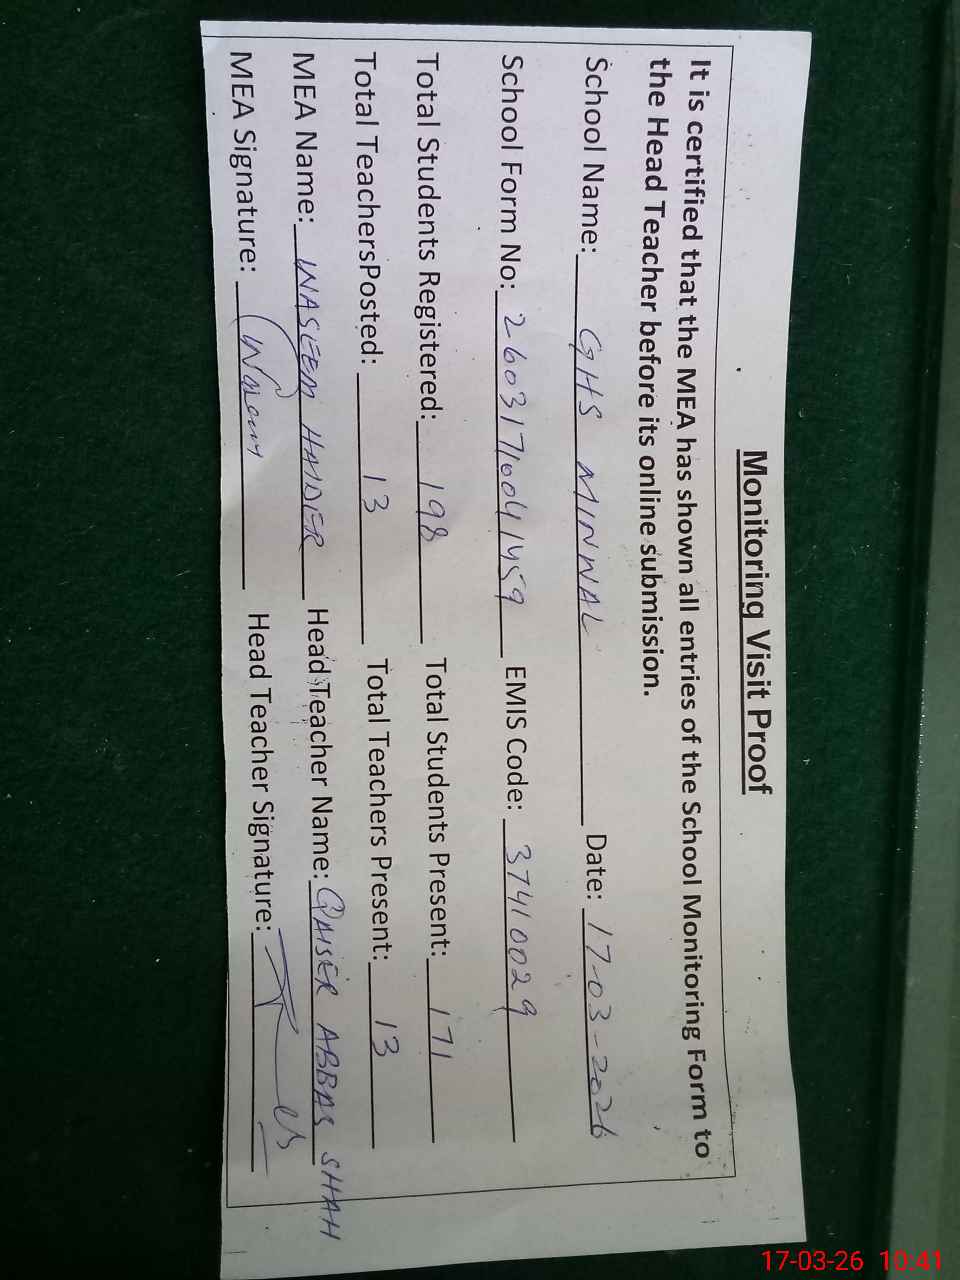 Monitoring Visit Proof
It is certified that the MEA has shown all entries of the School Monitoring Form to
the Head Teacher before its online submission.
School Name: GHS MINWAL Date: 17-03-2026
School Form No: 26031710041459 EMIS Code: 37410029
Total Students Registered: 198 Total Students Present: 171
Total TeachersPosted: 13 Total Teachers Present: 13
MEA Name: WASEEM HAIDER Head Teacher Name: QAISER ABBAS SHAH
MEA Signature: Waseem Head Teacher Signature:
17-03-26 10:41